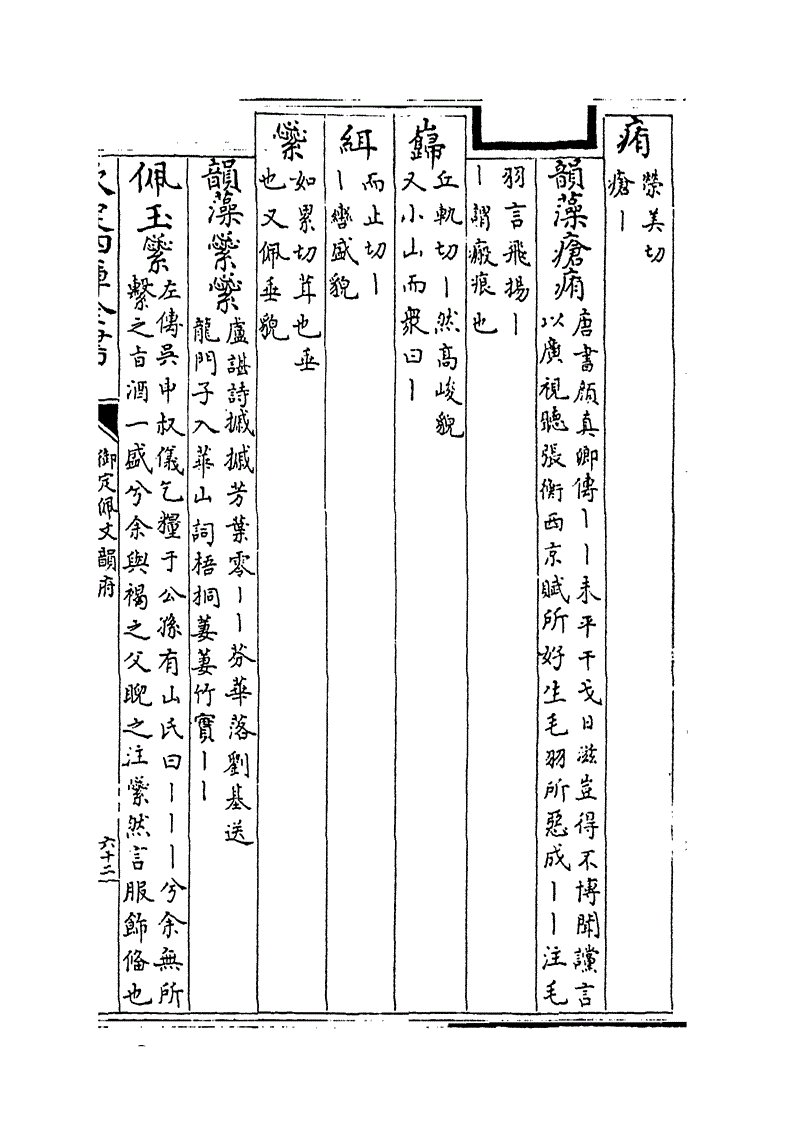 痏
榮美切
瘡丨
韻藻瘡痏
唐書顔真卿傳丨丨未平干戈日滋豈得不博聞讜言
以廣視聽張衡西京賦所好生毛羽所惡成丨丨注毛
羽言飛揚丨
丨謂瘢痕也
巋
丘軌切丨然髙峻貌
又小山而衆曰丨
緷
而止切丨
丨轡盛貌
繠
如累切茸也垂
也又佩垂貌
韻藻繠繠
盧諶詩摵摵芳葉零丨丨芬華落劉基送
龍門子入華山詞梧桐萋萋竹實丨丨
佩玉繠
左傳吳申叔儀乞糧于公孫有山氏曰丨丨丨兮余無所
繫之旨酒一盛兮余與褐之父睨之注繠然言服飾備也
欽定四庫全書
御定佩文韻府
六十二